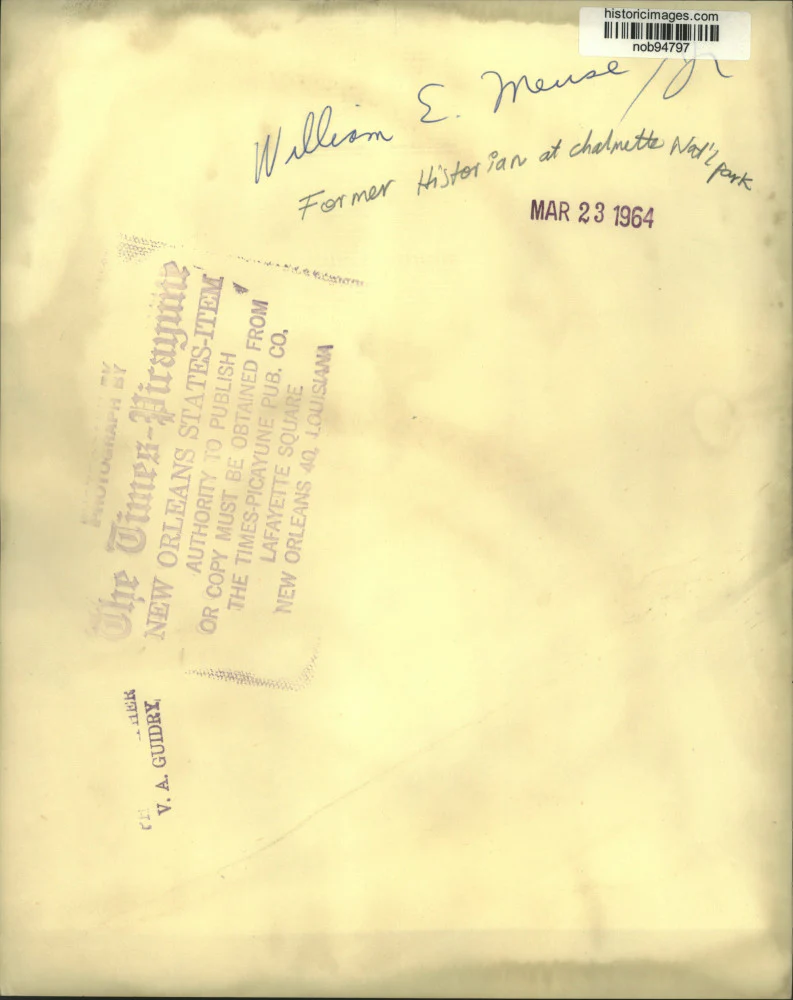 historicimages.com
nob94797
William E. Meuse / Jr
Former Historian at chalmette Nat'l park
MAR 23 1964
PHOTOGRAPH BY
The Times-Picayune
NEW ORLEANS STATES-ITEM
AUTHORITY TO PUBLISH
OR COPY MUST BE OBTAINED FROM
THE TIMES-PICAYUNE PUB. CO.
LAFAYETTE SQUARE
NEW ORLEANS 40, LOUISIANA
V. A. GUIDRY